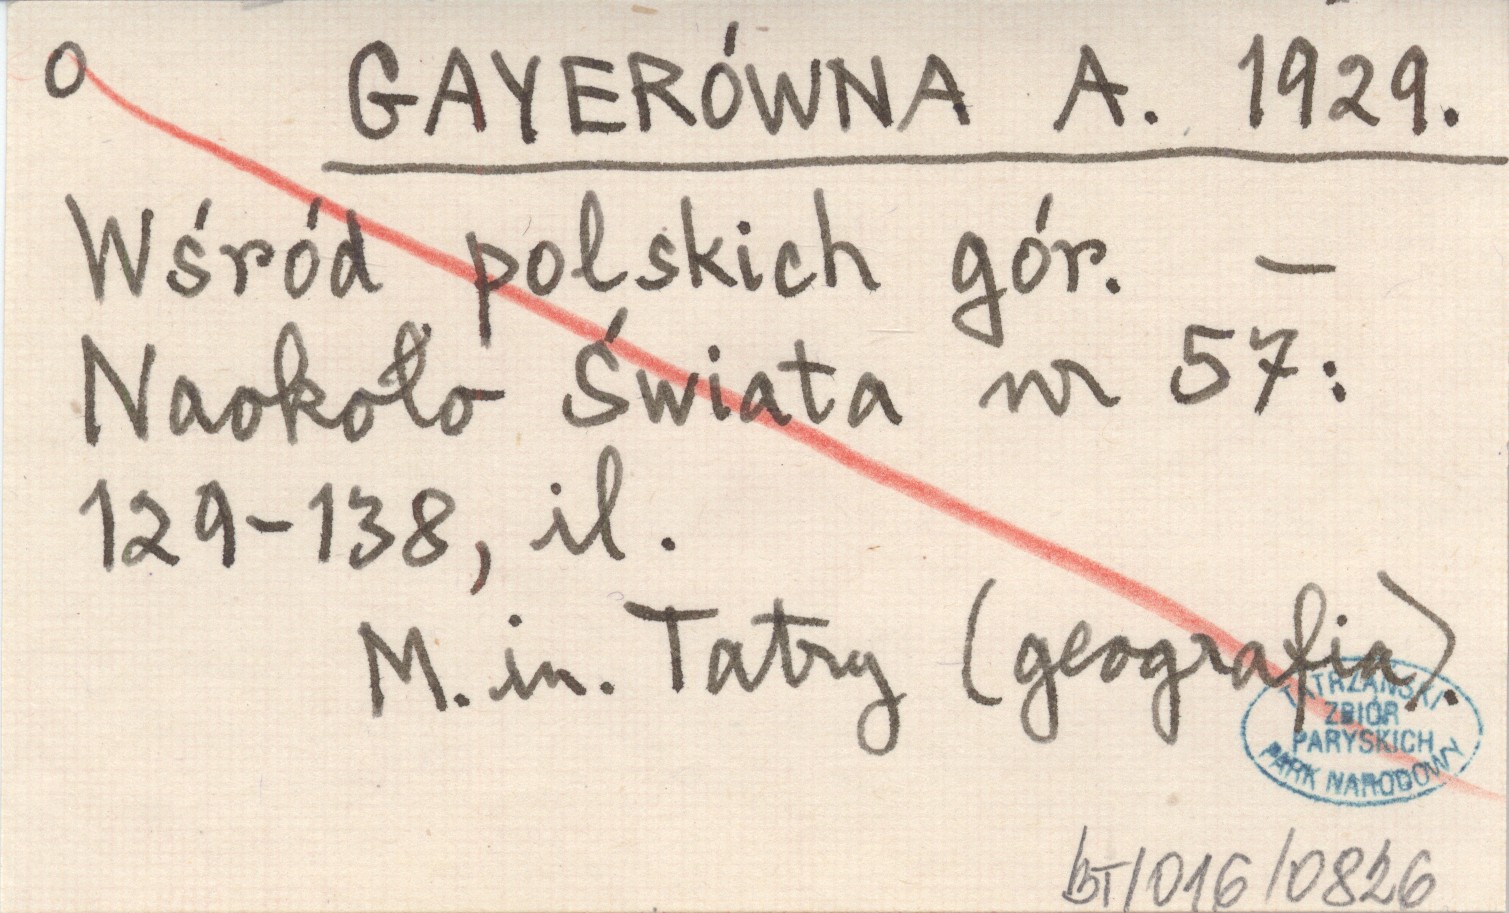 o GAYERÓWNA A. 1929.
Wśród polskich gór. –
Naokoło Świata nr 57:
129-138, il.
M. in. Tatry (geografia).
TATRZAŃSKI
ZBIÓR
PARYSKICH
PARK NARODOWY
BT/016/0826